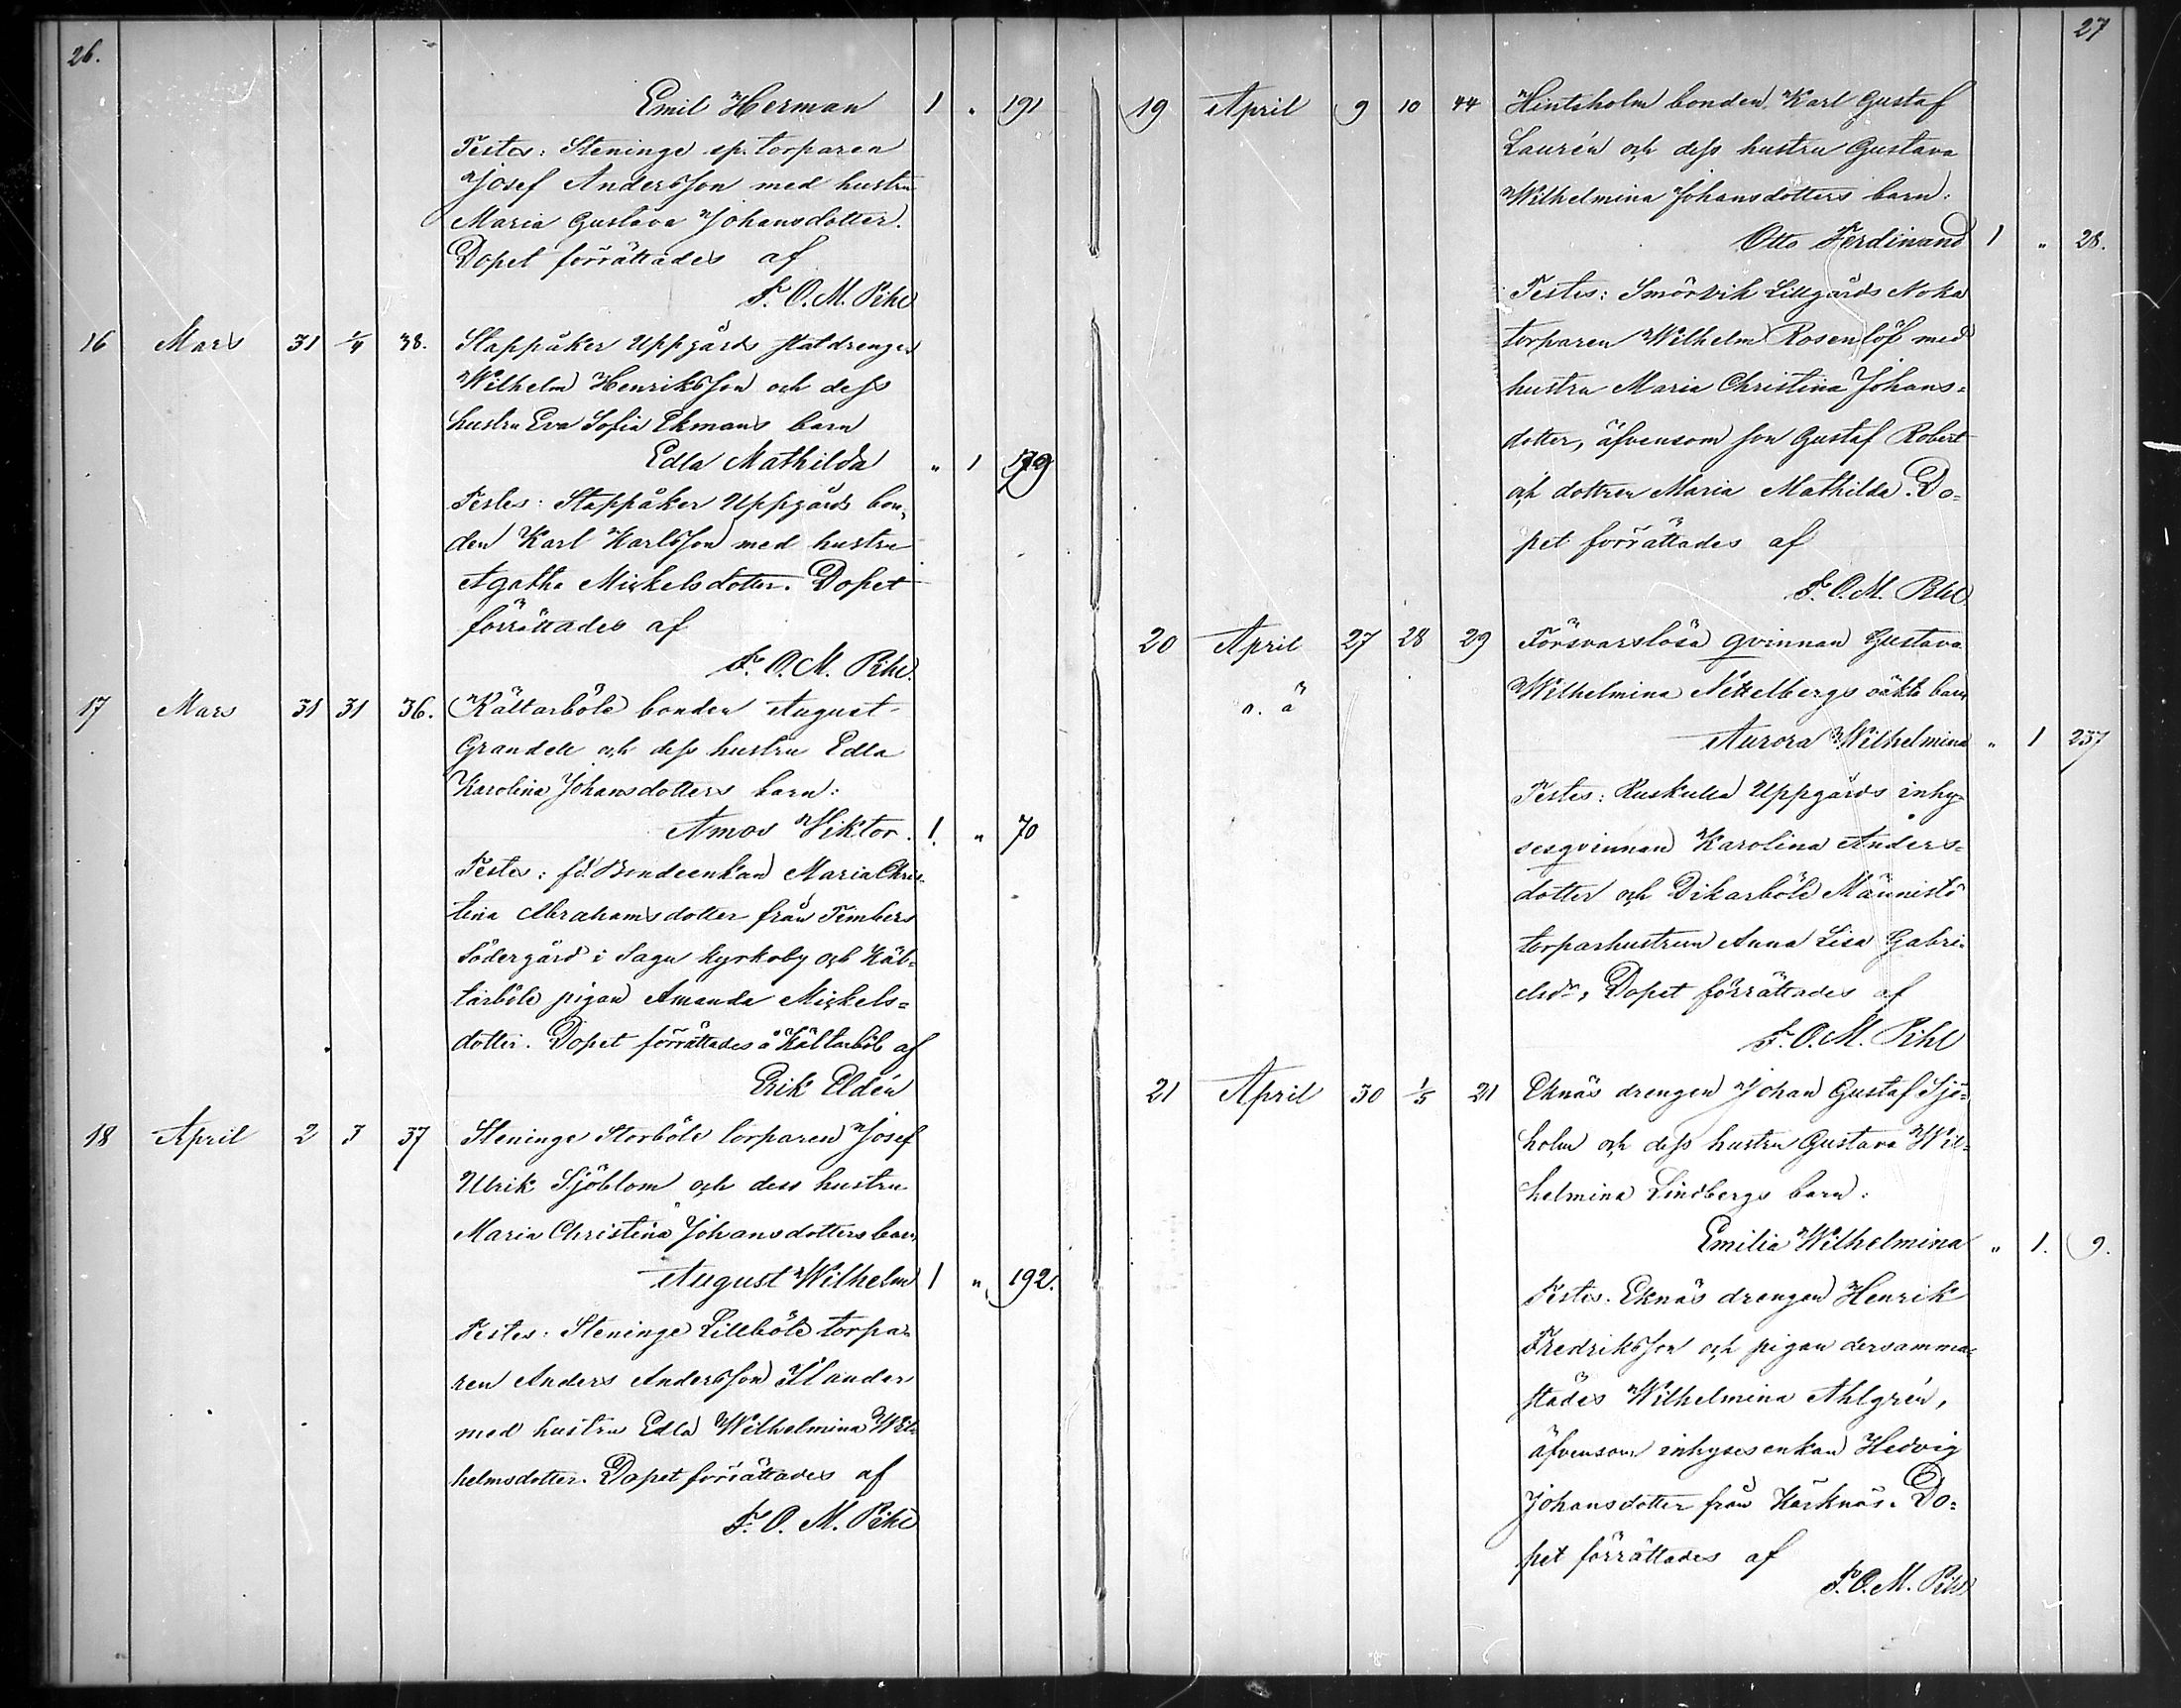 26.
Emil Herman 1 " 191
Testes: Steninge sp. torparen
Josef Andersson med hustru
Maria Gustava Johansdotter.
Dopet förrättades af
F. O. M. Pihl
16 Mars 31 1/4 38. Slappåker Uppgårds statdrengen
Wilhelm Henriksson och dess
hustru Eva Sofia Ekmans barn
Edla Mathilda " 1 179
Testes: Slappåker Uppgårds bon-
den Karl Karlsson med hustru
Agatha Mickelsdotter. Dopet
förrättades af
F. O. M. Pihl.
17 Mars 31 31 36. Kältarböle bonden August
Grandell och dess hustru Edla
Karolina Johansdotters barn:
Amos Viktor. 1. " 70
Testes: fd. Bondeenkan Maria Chris-
tina Abrahamsdotter från Timbers
Södergård i Sagu kyrkoby och Käl-
tarböle pigan Amanda Mickels=
dotter. Dopet förrättades å Kältarböle af
Erik Eldén
18 April 2 3 37 Steninge Storböle torparen Josef
Ulrik Sjöblom och dess hustru
Maria Christina Johansdotters barn
August Wilhelm 1 " 192.
Testes: Steninge Lillböle torpa-
ren Anders Andersson
med hustru Edla Wilhelmina Wil-
helmsdotter. Dopet förrättades af
F. O. M. Pihl
27
19 April 9 10 44 Hintsholm bonden Karl Gustaf
Laurén och dess hustru Gustava
Wilhelmina Johansdotters barn:
Otto Ferdinand 1 " 28.
Testes: Smörvik Lillgårds Noka
torparen Wilhelm Rosenlöf med
hustru Maria Christina Johans=
dotter, äfvensom son Gustaf Robert
och dottren Maria Mathilda. Do=
pet förrättades af
F. O. M. Pihl
20 April 27 28 29 Försvarslösa qvinnan Gustava
Wilhelmina Nettelbergs oäkta barn
o. ä
Aurora Wilhelmina " 1 237
Testes: Ruskulla Uppgårds inhy-
sesqvinnan Karolina Anders=
dotter och Dikarböle Männistö
torparhustrun Anna Lisa Gabri-
elsdr. Dopet förrättades af
F. O. M. Pihl
21 April 30 1/5 21 Eknäs drengen Johan Gustaf Sjö-
holm och dess hustru Gustava Wil=
helmina Lindbergs barn:
Emilia Wilhelmina " 1. 9.
Testes. Eknäs drengen Henrik
Fredriksson och pigan dersamma-
städes Wilhelmina Ahlgrén,
äfvensom inhysesenkan Hedvig
Johansdotter från Karknäs. Do=
pet förrättades af
F. O. M. Pihl